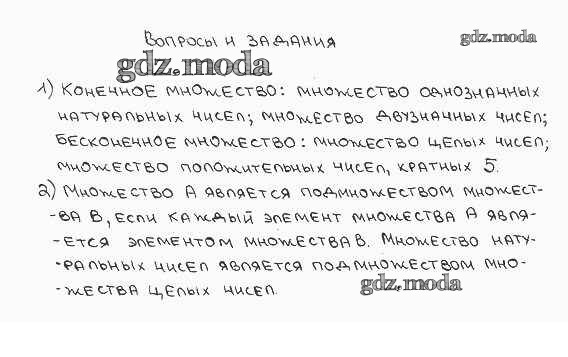 Вопросы и задания
gdz.moda
gdz.moda
1) Конечное множество: множество однозначных
натуральных чисел; множество двузначных чисел;
бесконечное множество: множество целых чисел;
множество положительных чисел, кратных 5.
2) Множество А является подмножеством множест-
-ва В, если каждый элемент множества А явля-
-ется элементом множества В. Множество нату-
-ральных чисел является подмножеством мно-
-жества целых чисел.
gdz.moda